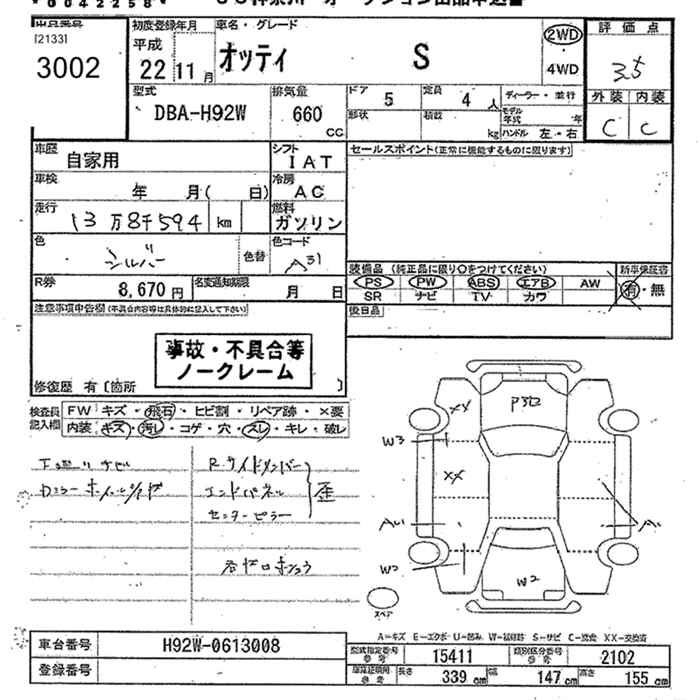 0042258
[2133]
3002
初度登録年月
平成
22 11月
車名・グレード
オッティ S
2WD
4WD
評価点
3.5
外装 内装
C C
型式
DBA-H92W
排気量
660
CC
ドア 5
定員 4人
ディーラー・並行
形状
積載 kg
モデル年式 年
ハンドル 左・右
車歴 自家用
シフト IAT
セールスポイント(正常に機能するものに限ります)
車検 年 月( 日)
冷房 AC
走行 13万8千594 km
燃料 ガソリン
色 シルバー
色替
色コード A31
装備品 (純正品に限り○をつけてください)
新車保証書
PS PW ABS エアB AW
有・無
SR ナビ TV カワ
R券 8,670円
名変通知期限 月 日
後日品
注意事項申告欄(不具合内容等は具体的に記入して下さい)
事故・不具合等
ノークレーム
修復歴 有〔箇所 〕
検査員記入欄
FW キズ・飛石・ヒビ割・リペア跡・×要
内装 キズ・汚レ・コゲ・穴・スレ・キレ・破レ
Rサイドメンバー
エンドパネル
センターピラー
歪
P3ロ
XX
W3
XX
A1
W2
W2
スペア
A-キズ E-エクボ U-凹み W-補修跡 S-サビ C-腐食 XX-交換済
車台番号 H92W-0613008
登録番号
型式指定番号 15411
類別区分番号 2102
長さ 339 cm 幅 147 cm 高さ 155 cm